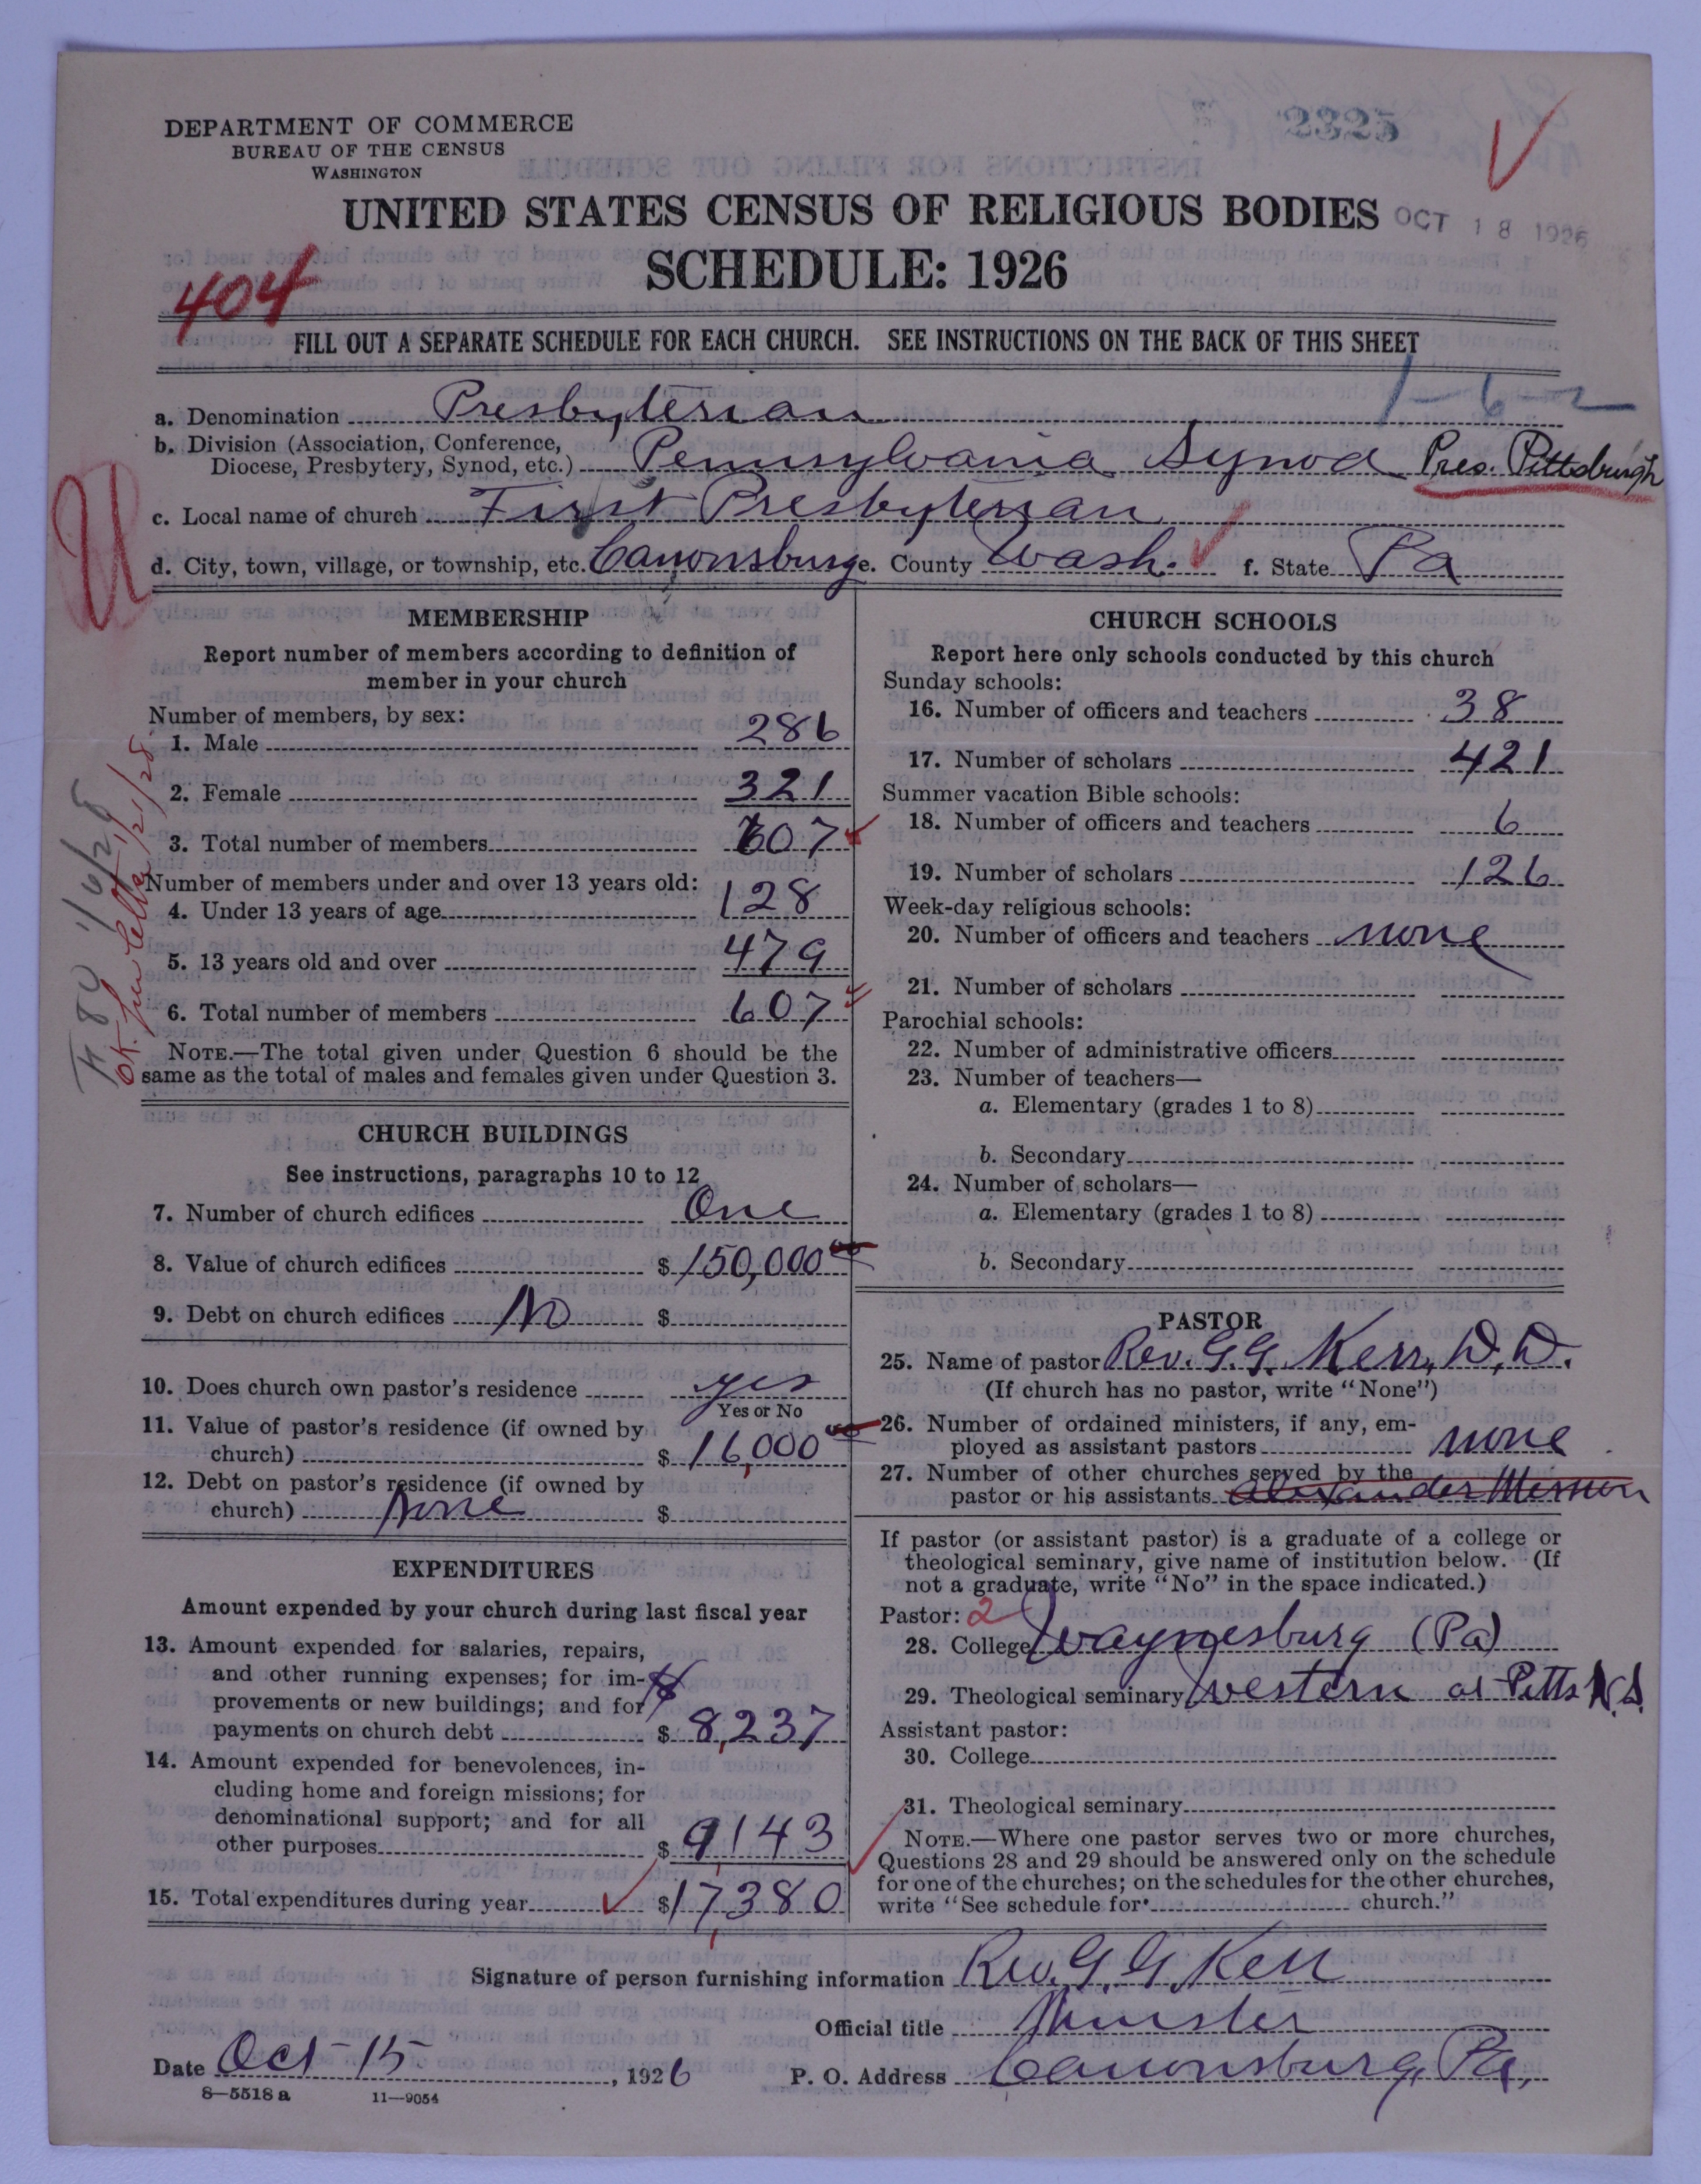 DEPARTMENT OF COMMERCE
BUREAU OF THE CENSUS
WASHINGTON
2325
UNITED STATES CENSUS OF RELIGIOUS BODIES
OCT 18 1926
SCHEDULE: 1926
404
FILL OUT A SEPARATE SCHEDULE FOR EACH CHURCH. SEE INSTRUCTIONS ON THE BACK OF THIS SHEET
1-6-2
a. Denomination Presbyterian
b. Division (Association, Conference,
Diocese, Presbytery, Synod, etc.) Pennsylvania Synod Pres. Pittsburgh
c. Local name of church First Presbyterian
d. City, town, village, or township, etc. Canonsburg e. County Wash. f. State Pa
MEMBERSHIP
Report number of members according to definition of
member in your church
Number of members, by sex:
1. Male 286
2. Female 321
3. Total number of members 607
Number of members under and over 13 years old:
4. Under 13 years of age 128
5. 13 years old and over 479
6. Total number of members 607
NOTE.—The total given under Question 6 should be the
same as the total of males and females given under Question 3.
CHURCH BUILDINGS
See instructions, paragraphs 10 to 12
7. Number of church edifices One
8. Value of church edifices $ 150,000
9. Debt on church edifices No $
10. Does church own pastor's residence yes
Yes or No
11. Value of pastor's residence (if owned by
church) $ 16,000
12. Debt on pastor's residence (if owned by
church) None $
EXPENDITURES
Amount expended by your church during last fiscal year
13. Amount expended for salaries, repairs,
and other running expenses; for im-
provements or new buildings; and for
payments on church debt $ 8,237
14. Amount expended for benevolences, in-
cluding home and foreign missions; for
denominational support; and for all
other purposes $ 9143
15. Total expenditures during year $ 17,380
CHURCH SCHOOLS
Report here only schools conducted by this church
Sunday schools:
16. Number of officers and teachers 38
17. Number of scholars 421
Summer vacation Bible schools:
18. Number of officers and teachers 6
19. Number of scholars 126
Week-day religious schools:
20. Number of officers and teachers none
21. Number of scholars
Parochial schools:
22. Number of administrative officers
23. Number of teachers—
a. Elementary (grades 1 to 8)
b. Secondary
24. Number of scholars—
a. Elementary (grades 1 to 8)
b. Secondary
PASTOR
25. Name of pastor Rev. G.G. Kerr, D.D.
(If church has no pastor, write "None")
26. Number of ordained ministers, if any, em-
ployed as assistant pastors none
27. Number of other churches served by the
pastor or his assistants Alexander
If pastor (or assistant pastor) is a graduate of a college or
theological seminary, give name of institution below. (If
not a graduate, write "No" in the space indicated.)
Pastor: 2
28. College Waynesburg (Pa)
29. Theological seminary Western at Pitts N.S.
Assistant pastor:
30. College
31. Theological seminary
NOTE.—Where one pastor serves two or more churches,
Questions 28 and 29 should be answered only on the schedule
for one of the churches; on the schedules for the other churches,
write "See schedule for church."
Signature of person furnishing information Rev. G. G. Kerr
Official title Minister
Date Oct 15, 1926
P. O. Address Canonsburg, Pa,
8—5518 a 11—9054